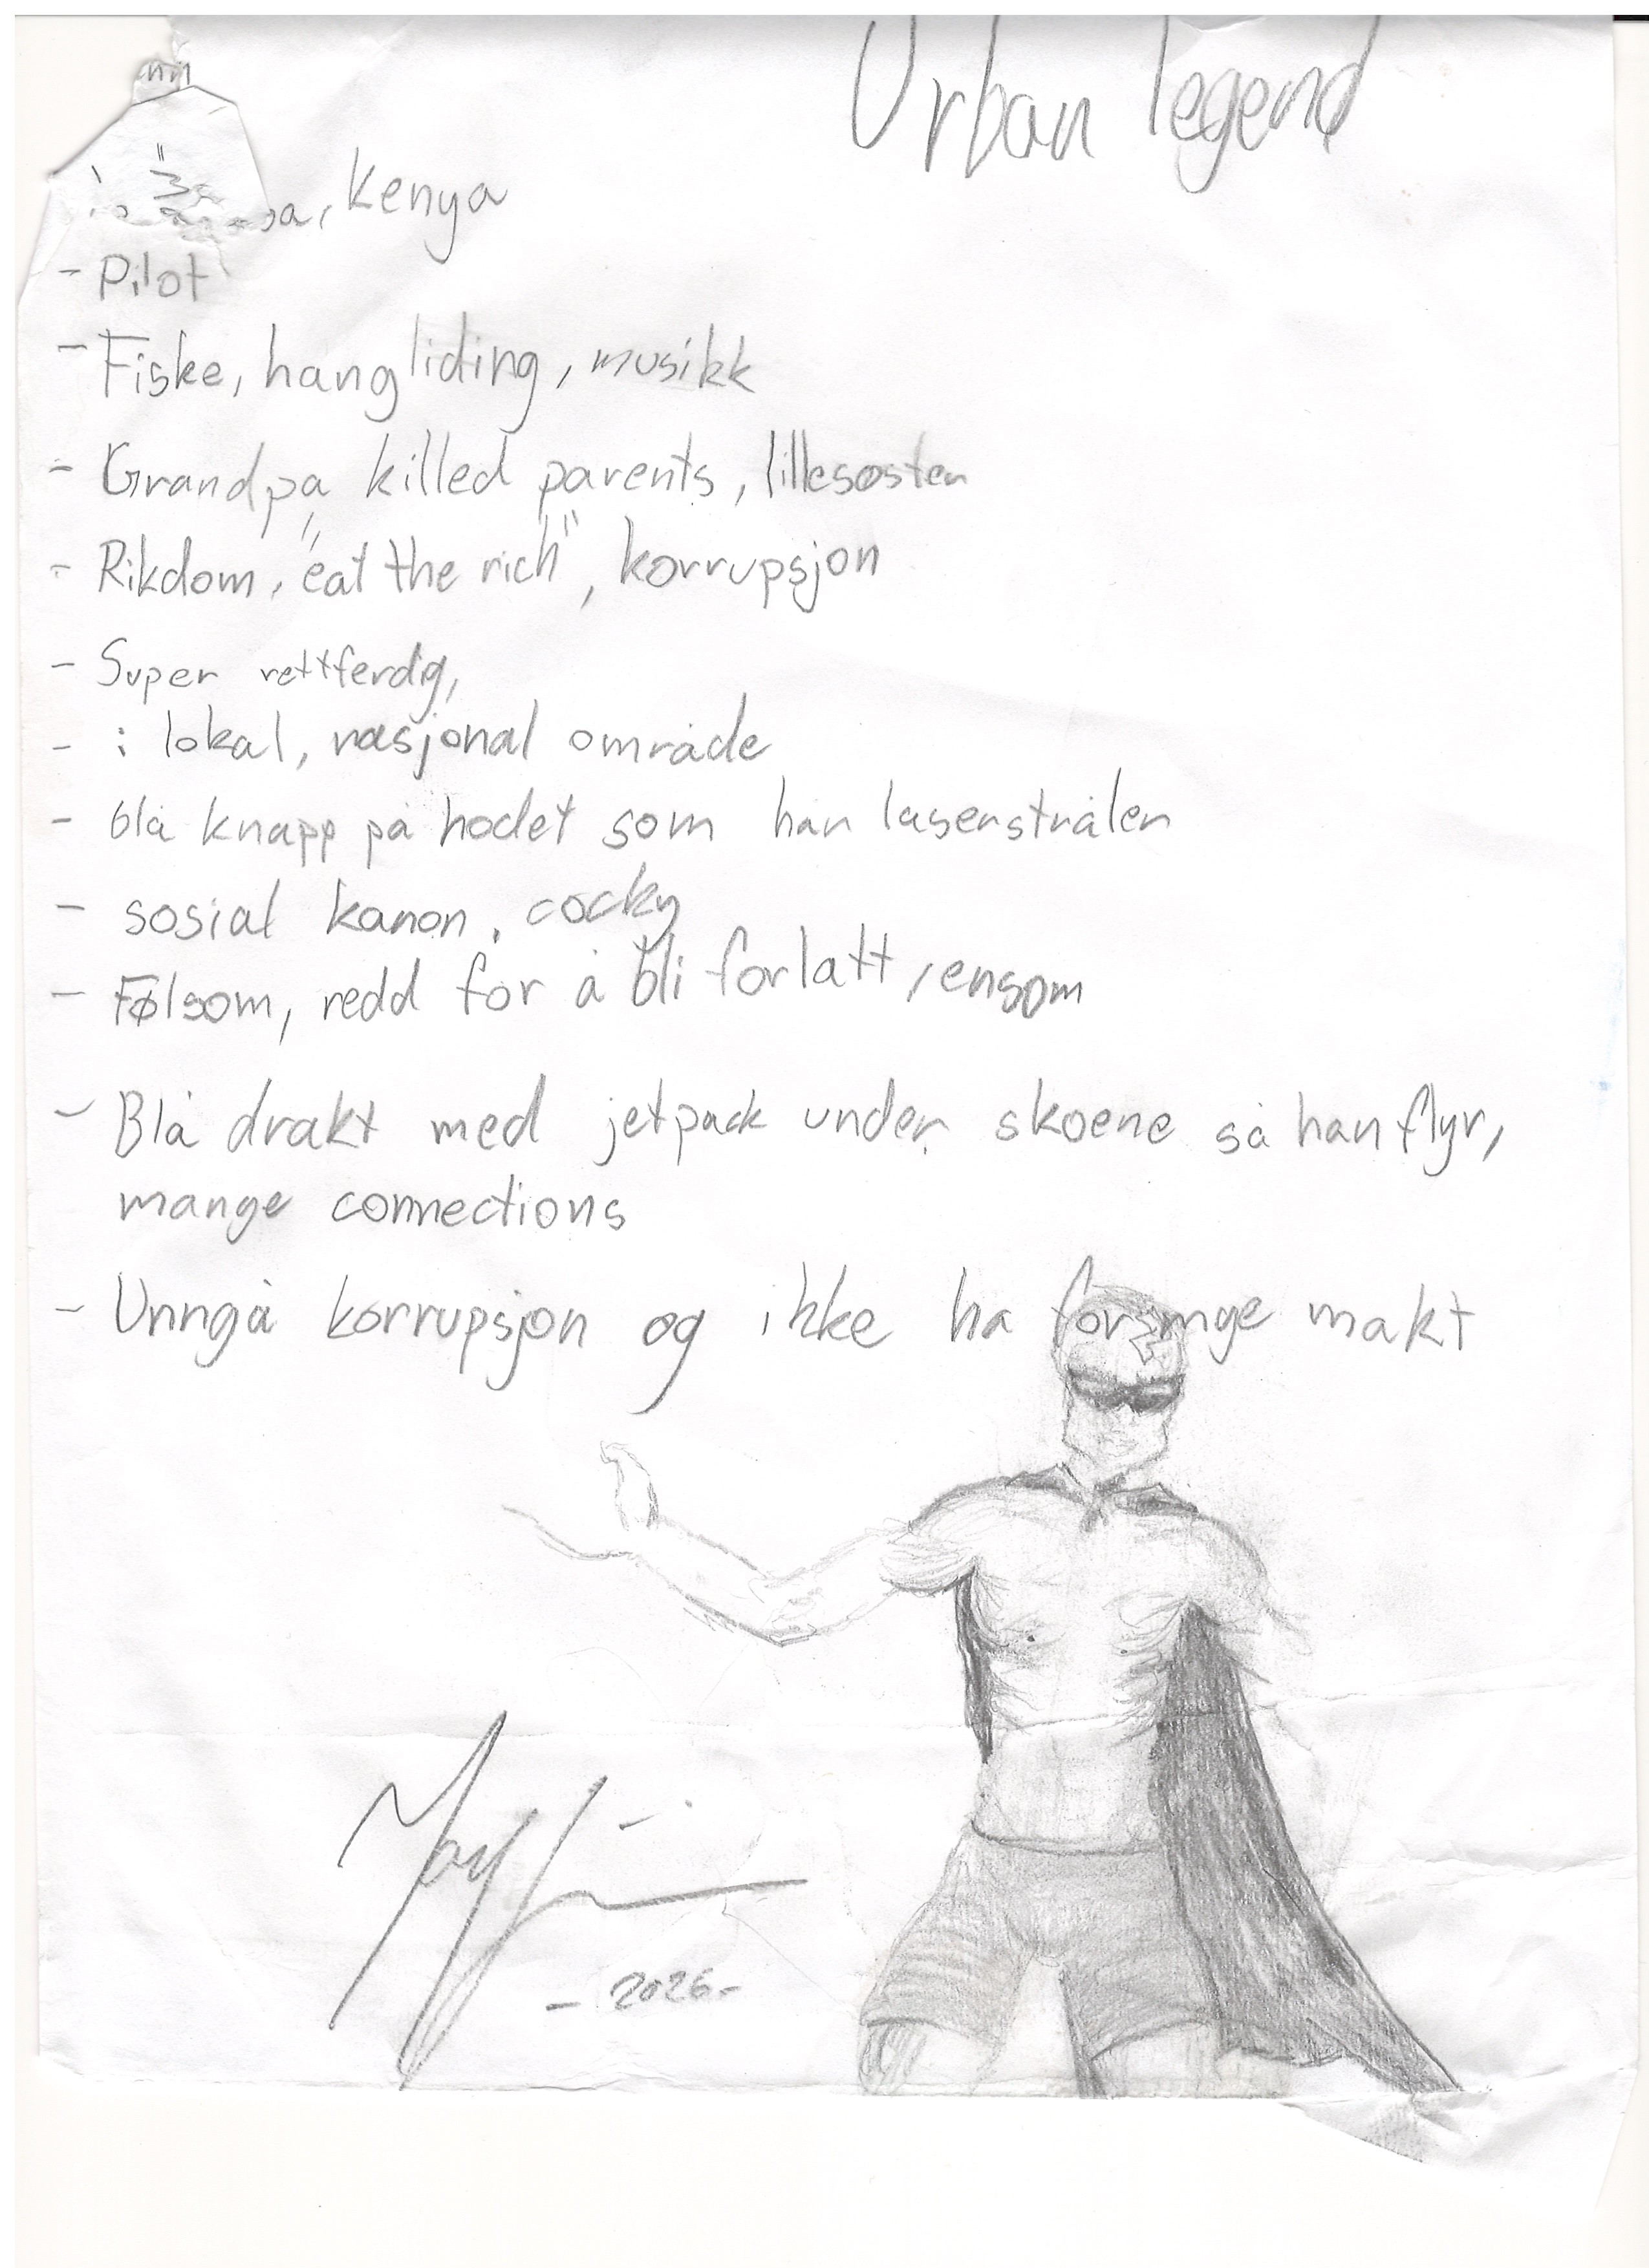 Urban legend
Kenya
- Pilot
- Fiske, hangliding, musikk
- Grandpa killed parents, lillesøster
- Rikdom, "eat the rich", korrupsjon
- Super rettferdig,
- i lokal, nasjonal område
- blå knapp på hodet som har laserstråler
- sosial kanon, cocky
- Følsom, redd for å bli forlatt, ensom
- Blå drakt med jetpack under skoene så han flyr,
mange connections
- Unngå korrupsjon og ikke ha for mye makt
- 2026 -